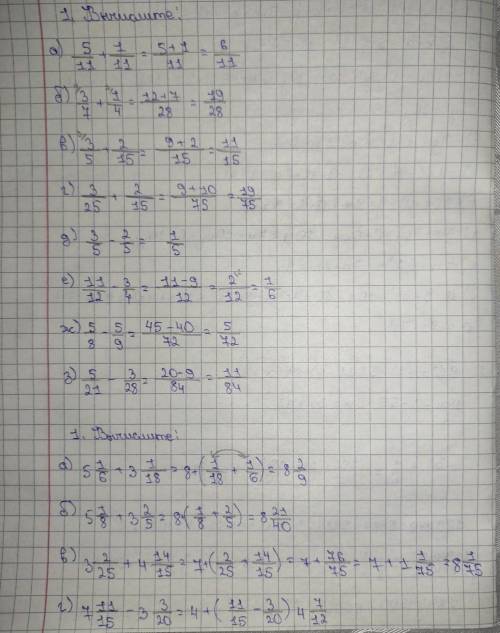 1. Вычислите:
а) 5/11 + 1/11 = 5+1/11 = 6/11
б) 3/7 + 1/4 = 12+7/28 = 19/28
в) 3/5 + 2/15 = 9+2/15 = 11/15
г) 3/25 + 2/15 = 9+10/75 = 19/75
д) 3/5 - 2/5 = 1/5
е) 11/12 - 3/4 = 11-9/12 = 2/12 = 1/6
ж) 5/8 - 5/9 = 45-40/72 = 5/72
з) 5/21 - 3/28 = 20-9/84 = 11/84
1. Вычислите:
а) 5 1/6 + 3 1/18 = 8+(1/18 + 1/6) = 8 2/9
б) 5 1/8 + 3 2/5 = 8+(1/8 + 2/5) = 8 21/40
в) 3 2/25 + 4 14/15 = 7+(2/25 + 14/15) = 7 + 76/75 = 7 + 1 1/75 = 8 1/75
г) 7 11/15 - 3 3/20 = 4 + (11/15 - 3/20) 4 7/12